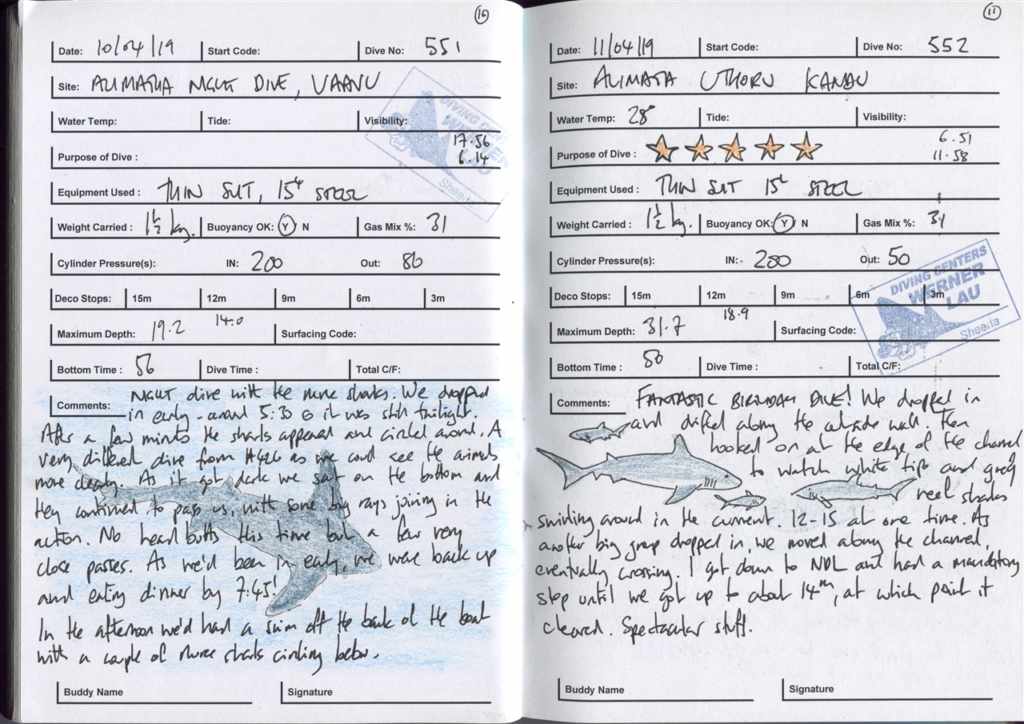 10
Date: 10/04/19 Start Code: Dive No: 551
Site: ALIMATHA NIGHT DIVE, VAAVU
Water Temp: Tide: Visibility:
17.56
Purpose of Dive : 6.14
Equipment Used : THIN SUIT, 15L STEEL
Weight Carried : 1½ kg. Buoyancy OK: Y N Gas Mix %: 31
Cylinder Pressure(s): IN: 200 Out: 80
Deco Stops: 15m 12m 9m 6m 3m
Maximum Depth: 19.2 14.0 Surfacing Code:
Bottom Time : 56 Dive Time : Total C/F:
Comments: NIGHT dive with the nurse sharks. We dropped
in early - around 5:30 so it was still twilight.
After a few minutes the sharks appeared and circled around. A
very different dive from #426 as we could see the animals
more clearly. As it got dark we sat on the bottom and
they continued to pass us, with some big rays joining in the
action. No head butts this time but a few very
close passes. As we'd been in early, we were back up
and eating dinner by 7:45!
In the afternoon we'd had a swim off the back of the boat
with a couple of nurse sharks circling below.
Buddy Name Signature
DIVING CENTERS
WERNER
LAU
Sheela
11
Date: 11/04/19 Start Code: Dive No: 552
Site: ALIMATA UTHORU KANDU
Water Temp: 28° Tide: Visibility:
6.51
Purpose of Dive : 11.58
Equipment Used : THIN SUIT 15L STEEL
Weight Carried : 1½ kg. Buoyancy OK: Y N Gas Mix %: 31
Cylinder Pressure(s): IN:- 200 Out: 50
Deco Stops: 15m 12m 9m 6m 3m
Maximum Depth: 31.7 18.9 Surfacing Code:
Bottom Time : 50 Dive Time : Total C/F:
Comments: FANTASTIC BIRTHDAY DIVE! We dropped in
and drifted along the outside wall. Then
hooked on at the edge of the channel
to watch white tip and grey
reef sharks
swirling around in the current. 12-15 at one time. As
another big group dropped in, we moved along the channel,
eventually crossing. I got down to NDL and had a mandatory
stop until we got up to about 14m, at which point it
cleared. Spectacular stuff.
Buddy Name Signature
DIVING CENTERS
WERNER
LAU
Sheela